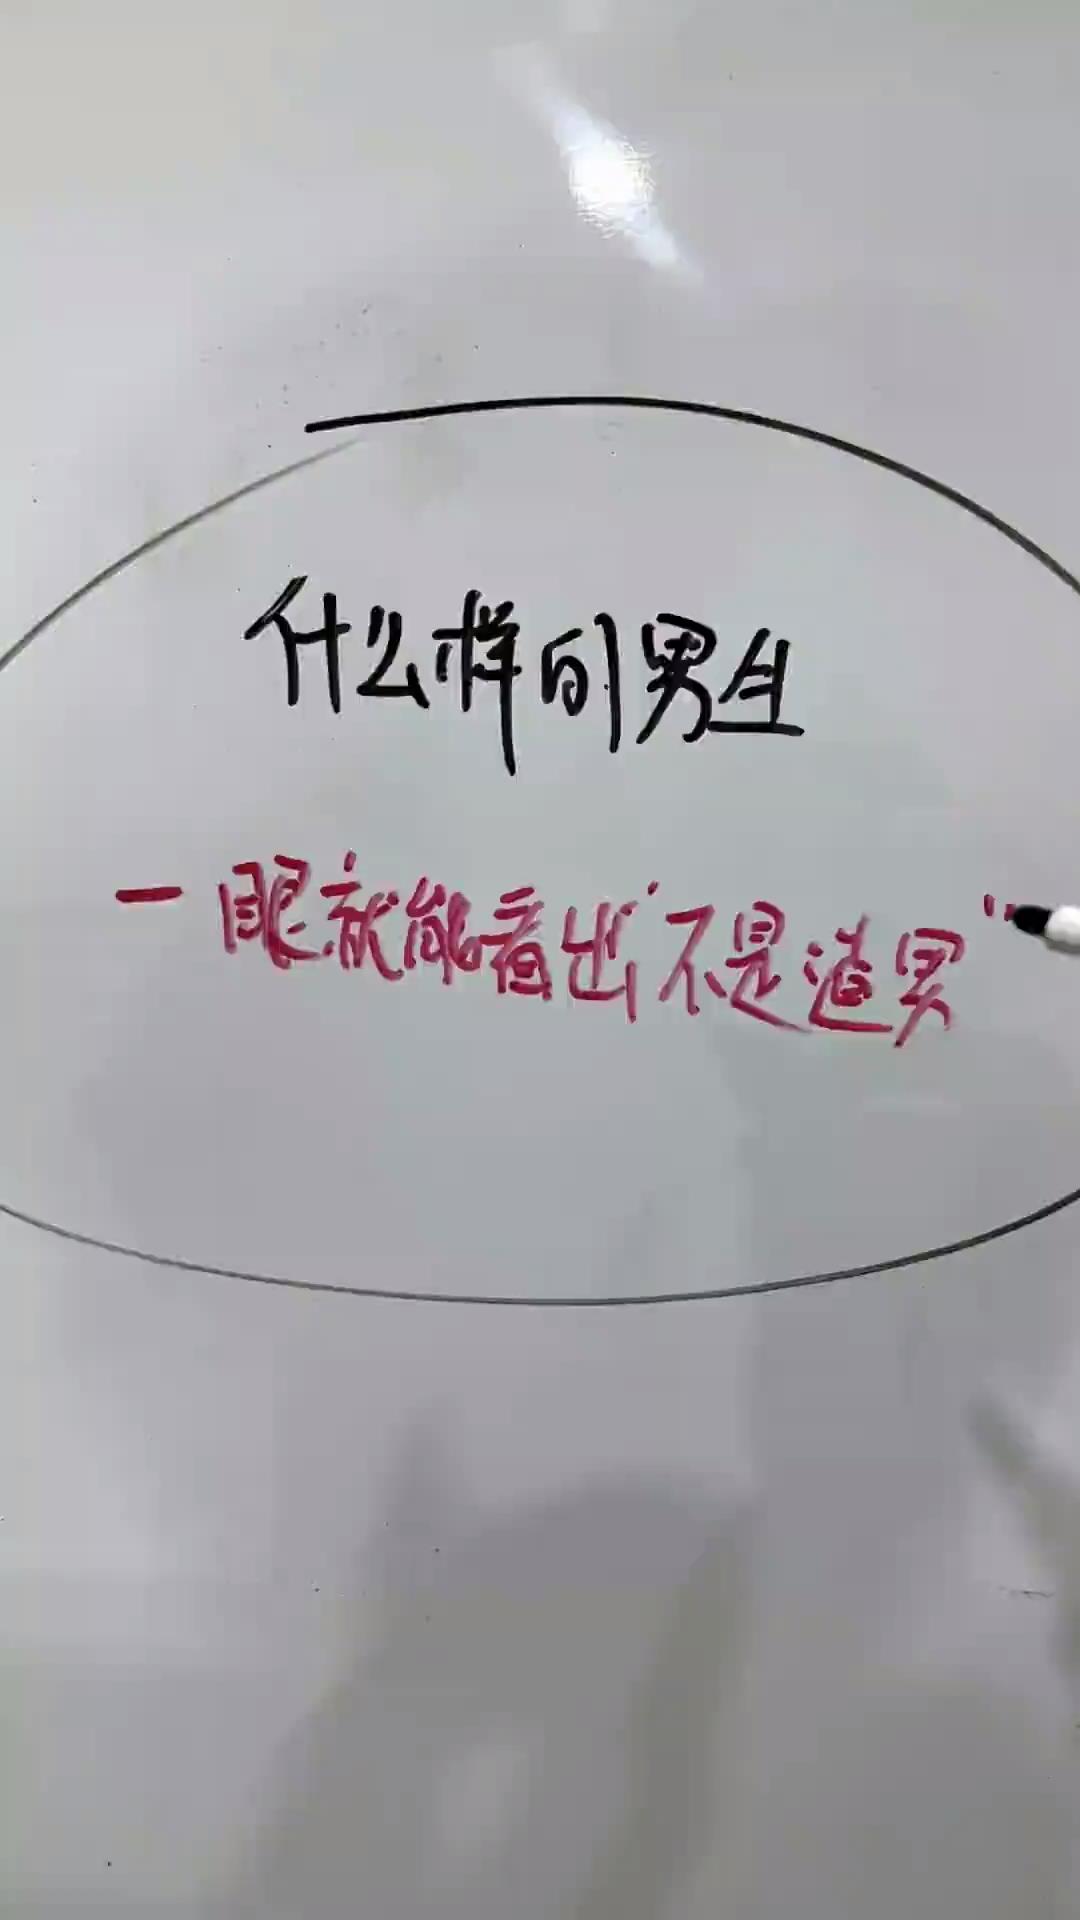 什么样的男生
一眼就能看出"不是渣男"